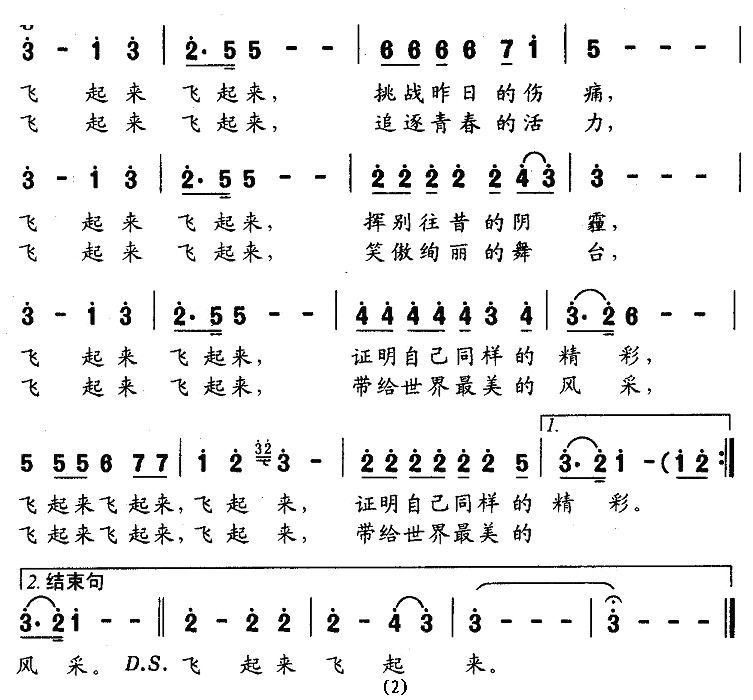 3 - 1 3 | 2· 5 5 - - | 6 6 6 6 7 1 | 5 - - - |
飞 起 来 飞 起 来, 挑 战 昨 日 的 伤 痛,
飞 起 来 飞 起 来, 追 逐 青 春 的 活 力,
3 - 1 3 | 2· 5 5 - - | 2 2 2 2 2 4 3 | 3 - - - |
飞 起 来 飞 起 来, 挥 别 往 昔 的 阴 霾,
飞 起 来 飞 起 来, 笑 傲 绚 丽 的 舞 台,
3 - 1 3 | 2· 5 5 - - | 4 4 4 4 4 3 4 | 3· 2 6 - - |
飞 起 来 飞 起 来, 证 明 自 己 同 样 的 精 彩,
飞 起 来 飞 起 来, 带 给 世 界 最 美 的 风 采,
1.
5 5 5 6 7 7 | 1 2 3 2 3 - | 2 2 2 2 2 2 5 | 3· 2 1 - ( 1 2 :|
飞 起 来 飞 起 来, 飞 起 来, 证 明 自 己 同 样 的 精 彩。
飞 起 来 飞 起 来, 飞 起 来, 带 给 世 界 最 美 的
2. 结束句
3· 2 1 - - || 2 - 2 2 | 2 - 4 3 | 3 - - - | 3 - - - ||
风 采。 D.S. 飞 起 来 飞 起 来。
(2)